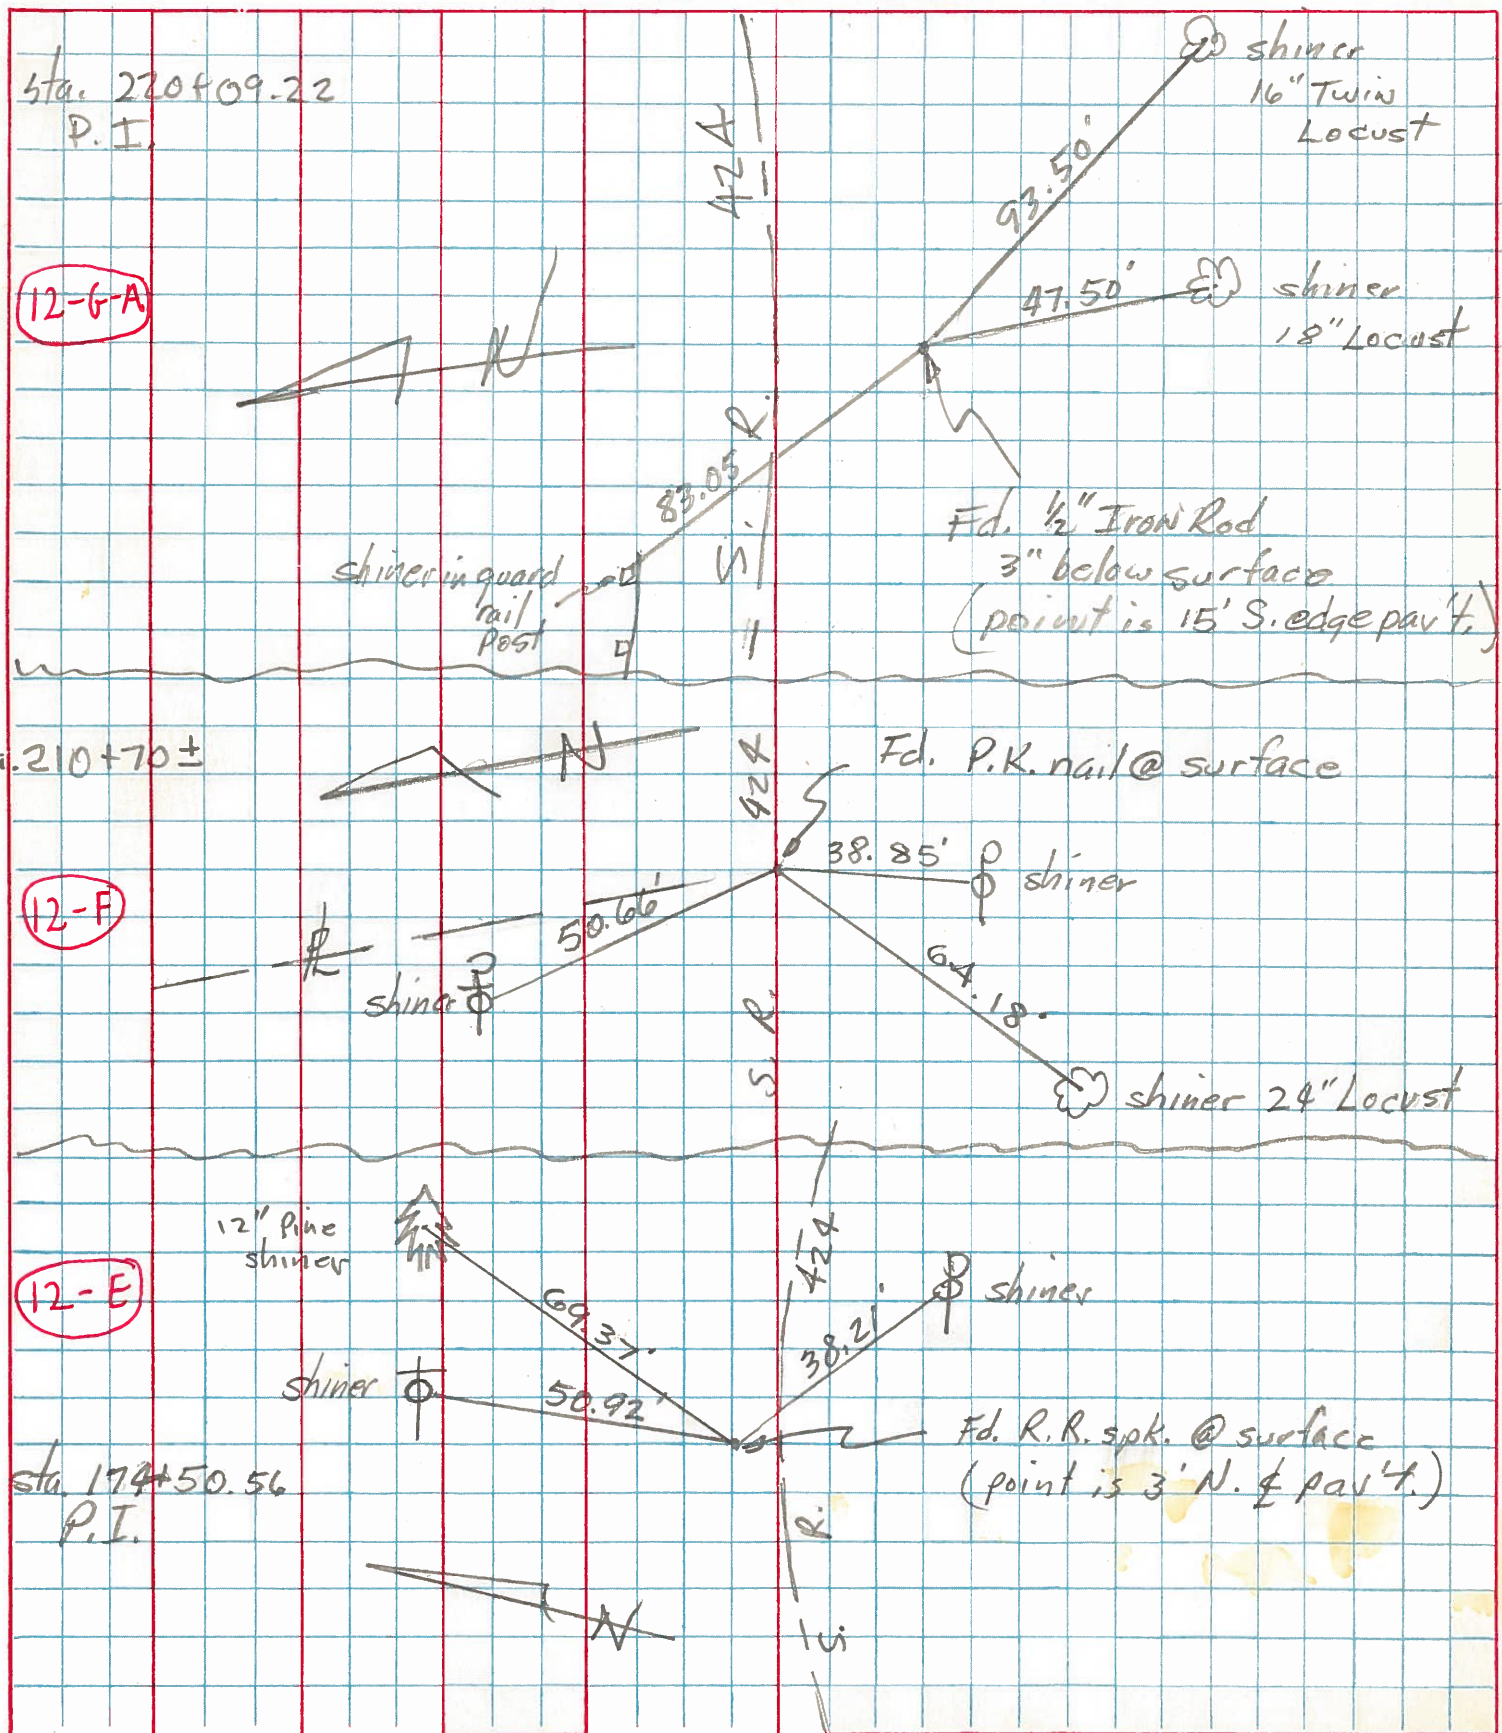 sta. 220+09.22
P.I.
424
shiner
16" Twin
Locust
93.50'
12-G-A
N
47.50'
shiner
18" Locust
S. R.
83.05
shiner in guard
rail
Post
Fd. 1/2" Iron Rod
3" below surface
(point is 15' S. edge pav't.)
.210+70±
N
424
Fd. P.K. nail @ surface
12-F
38.85'
shiner
50.66'
PL
shiner
64.18
S. R.
shiner 24" Locust
12" Pine
shiner
424
12-E
69.37
38.21'
shiner
shiner
50.92'
Fd. R.R. spk. @ surface
(point is 3' N. ¢ pav't.)
sta. 174+50.56
P.I.
S. R.
N